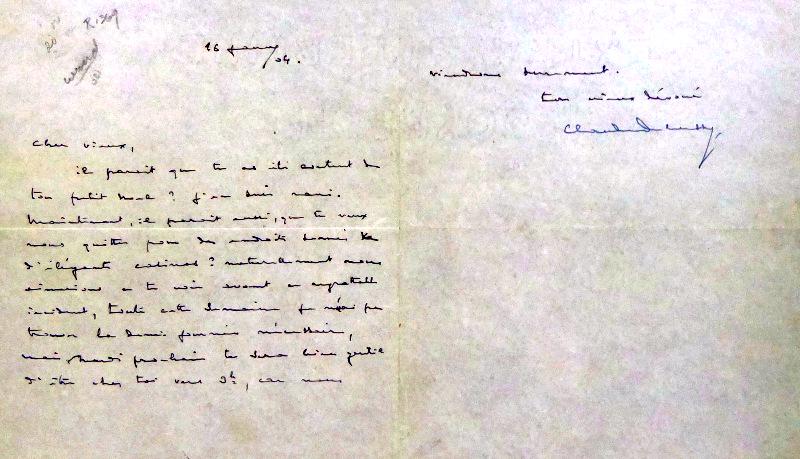 16 janv
/04.
Cher vieux,
il parait que tu as été content de
ton petit Noël ? j'en suis ravi.
Maintenant, il parait aussi, que tu veux
nous quitter pour des endroits
d'élégants ? naturellement nous
aimerions à te voir avant ce regrettable
incident, toute cette semaine je n'ai pu
trouver la demi journée nécessaire,
mais, Mardi prochain tu seras bien gentil
d'être chez toi vers 3h, car nous
viendrons surement.
ton vieux dévoué
Claude Debussy